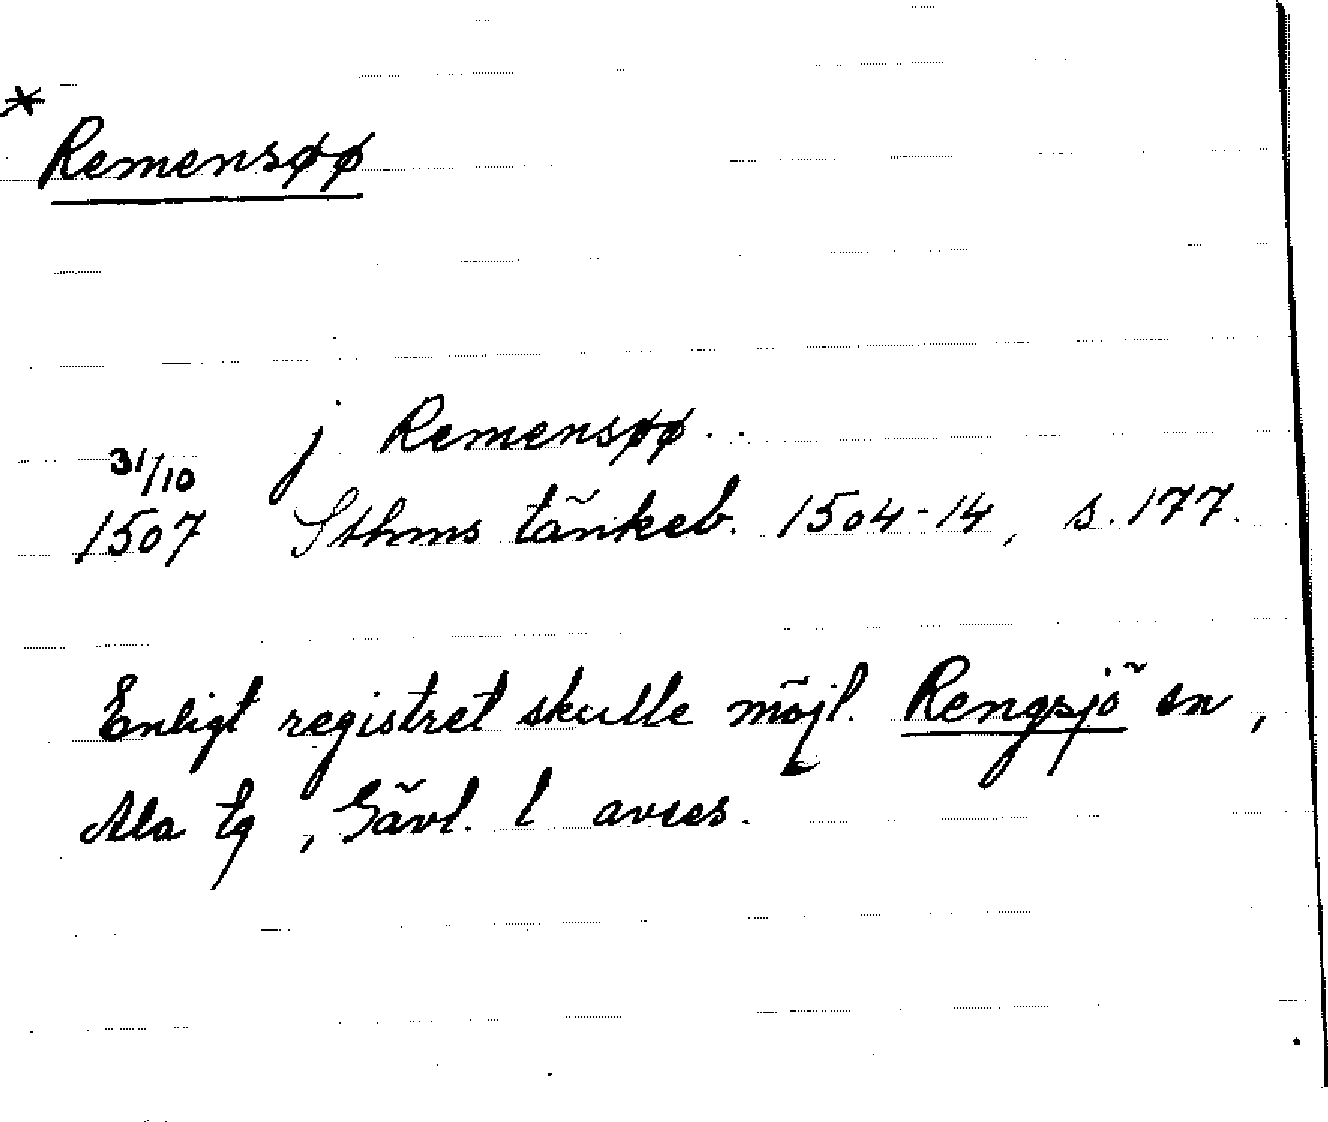 *
Remensøø
j Remensøø..
31/10
1507 Sthms tänkeb. 1504-14, s. 177.
Enligt registret skulle möjl. Rengsjö sn,
Ala tg, Gävl. l avses.